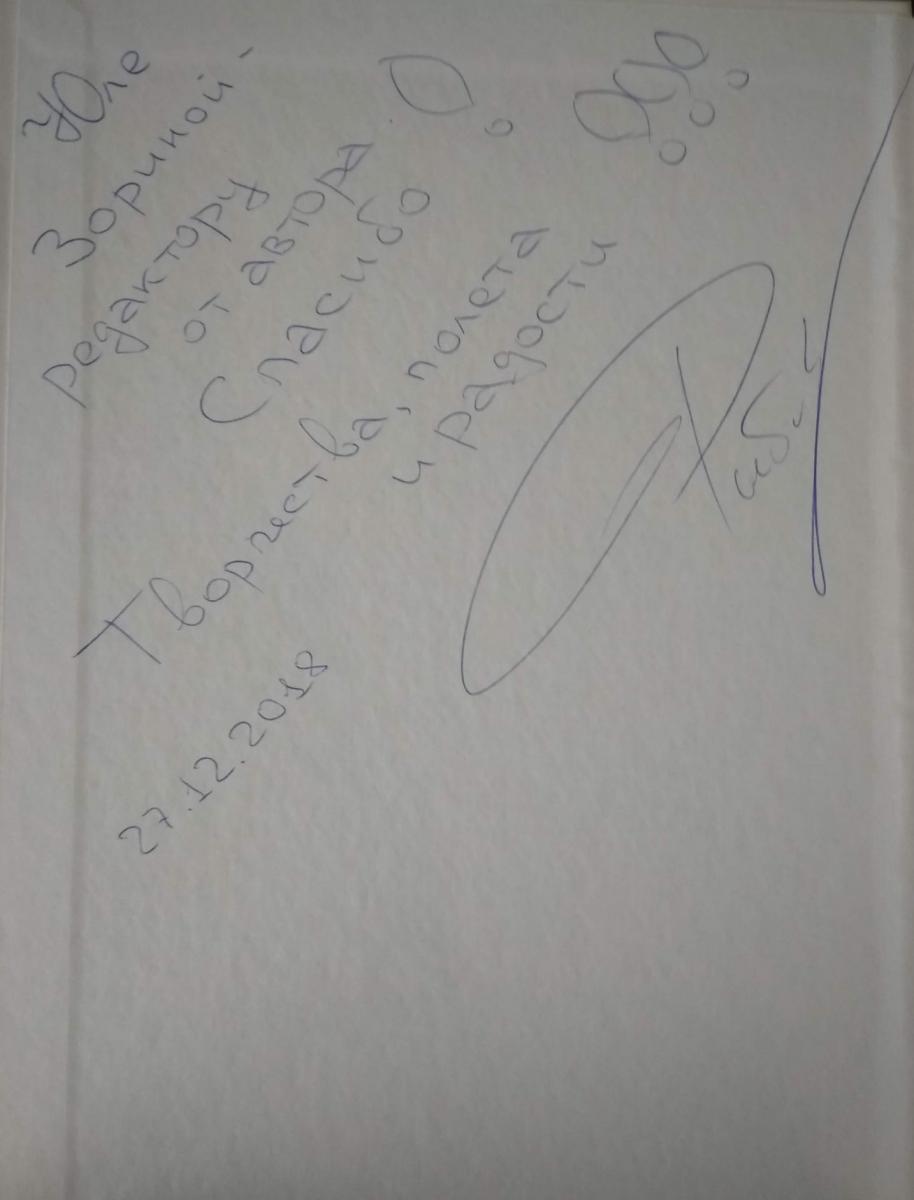 Юле
Зориной -
редактору
от автора.
Спасибо
Творчества, полета
и радости
27.12.2018